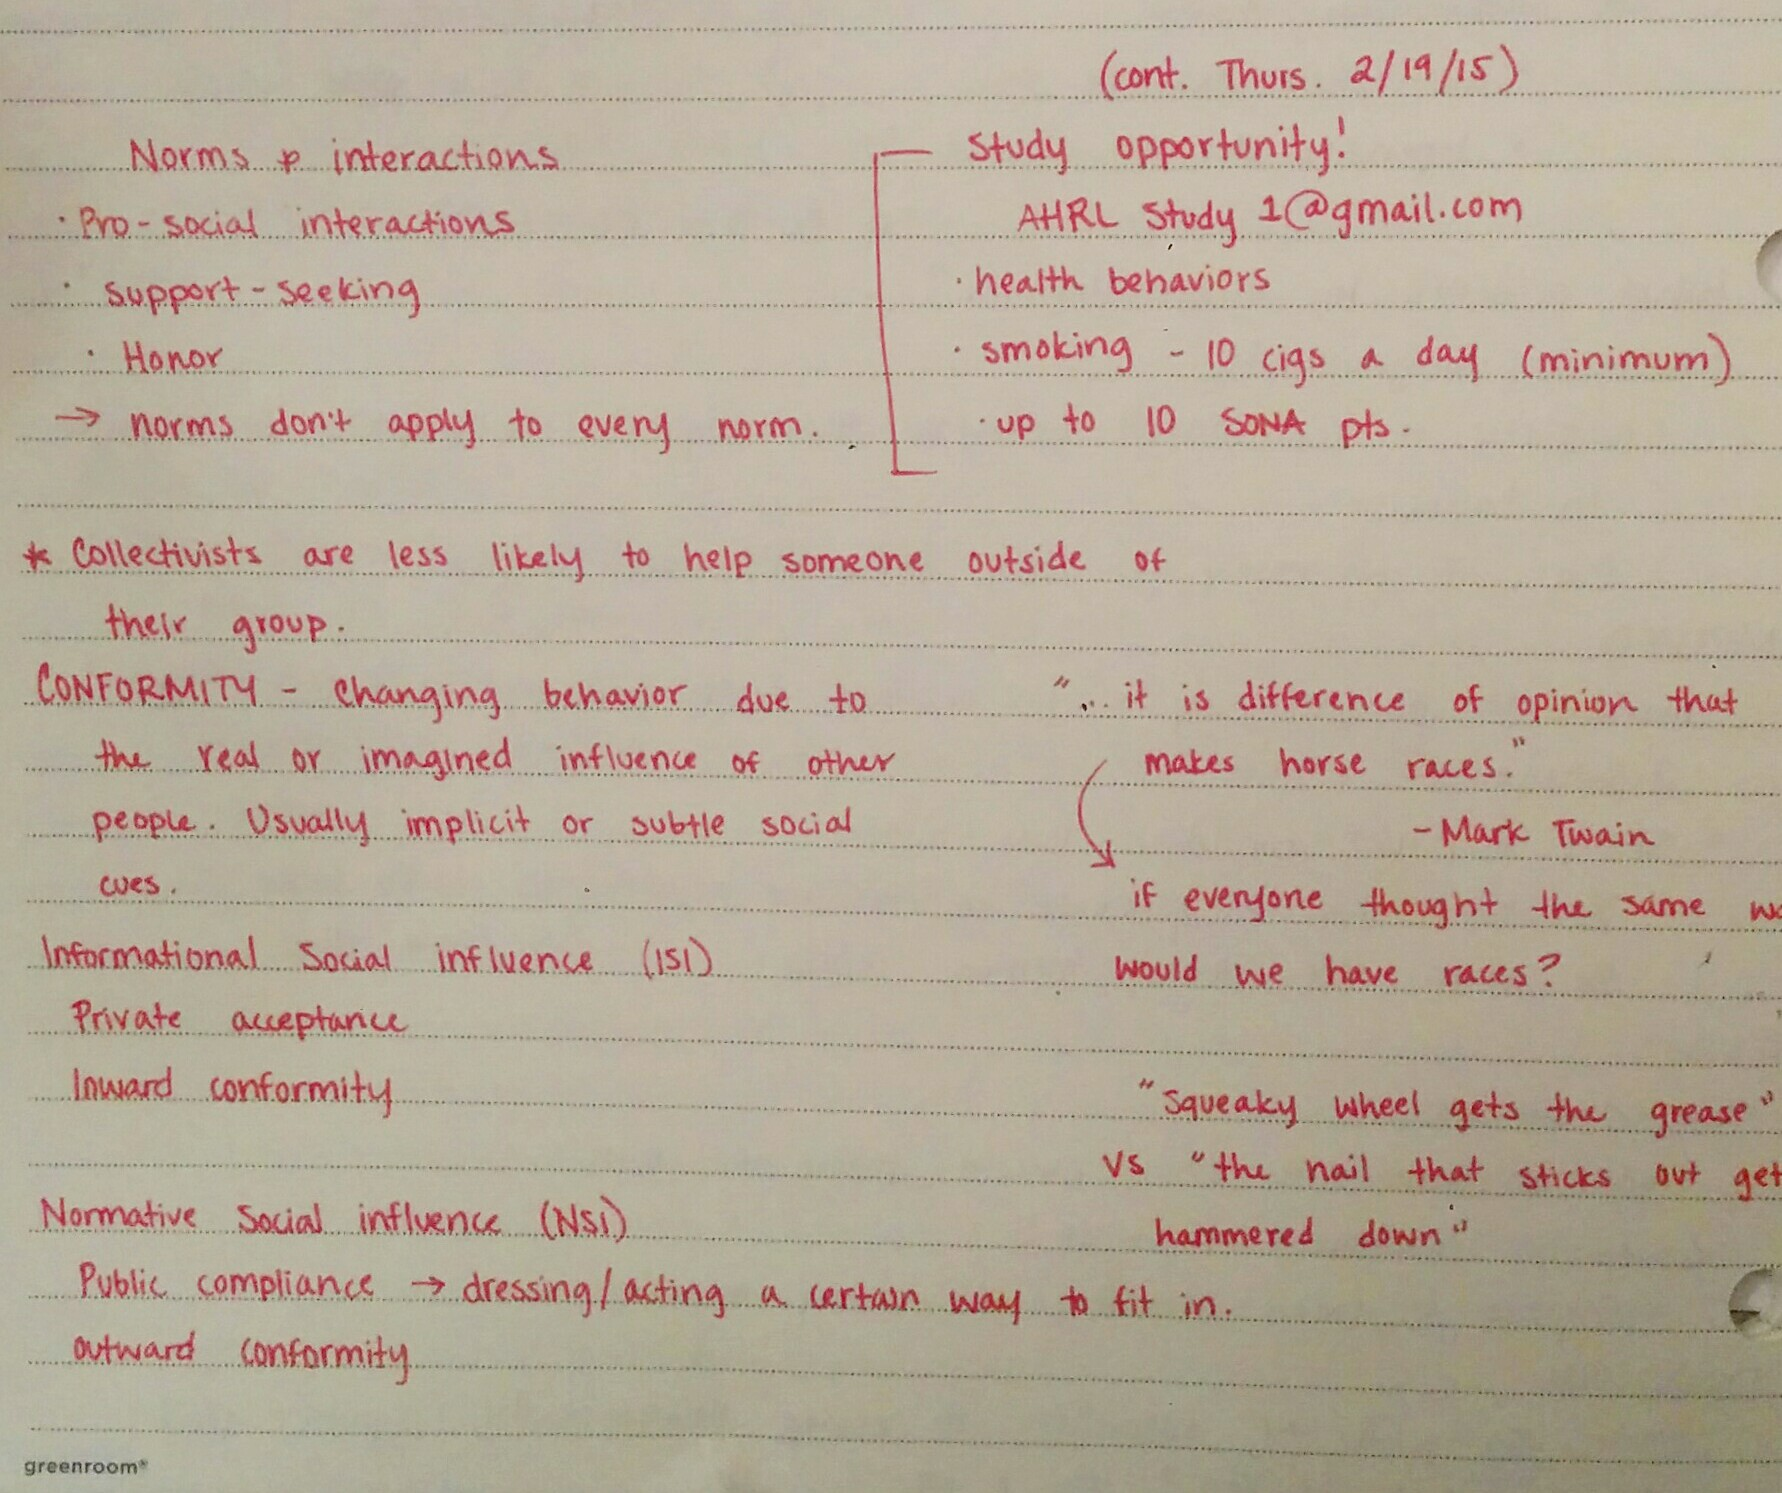 (cont. Thurs. 2/19/15)
Norms & interactions
· Pro-social interactions
· support-seeking
· Honor
→ norms don't apply to every norm.
Study opportunity!
AHRL Study 1@gmail.com
· health behaviors
· smoking - 10 cigs a day (minimum)
· up to 10 SONA pts.
* Collectivists are less likely to help someone outside of
their group.
CONFORMITY - changing behavior due to
the real or imagined influence of other
people. Usually implicit or subtle social
cues.
Informational Social influence (ISI)
Private acceptance
Inward conformity
"... it is difference of opinion that
makes horse races."
- Mark Twain
if everyone thought the same
would we have races?
"Squeaky wheel gets the grease"
vs "the nail that sticks out get
hammered down"
Normative Social influence (NSI)
Public compliance → dressing/acting a certain way to fit in.
outward conformity
greenroom®